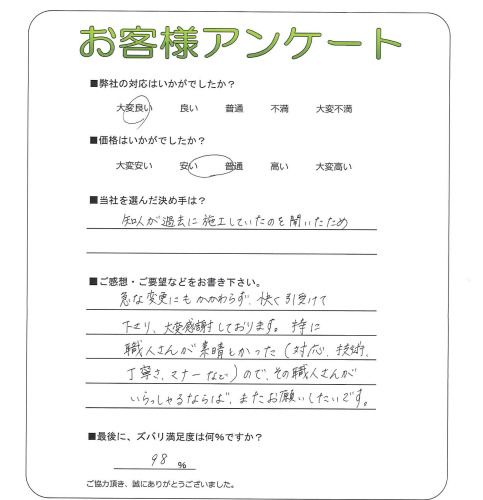 お客様アンケート
■弊社の対応はいかがでしたか？
大変良い 良い 普通 不満 大変不満
■価格はいかがでしたか？
大変安い 安い 普通 高い 大変高い
■当社を選んだ決め手は？
知人が過去に施工していたのを聞いたため
■ご感想・ご要望などをお書き下さい。
急な変更にもかかわらず、快く引受けて
下さり、大変感謝しております。特に
職人さんが素晴しかった（対応、技術、
丁寧さ、マナーなど）ので、その職人さんが
いらっしゃるならば、またお願いしたいです。
■最後に、ズバリ満足度は何％ですか？
98 %
ご協力頂き、誠にありがとうございました。